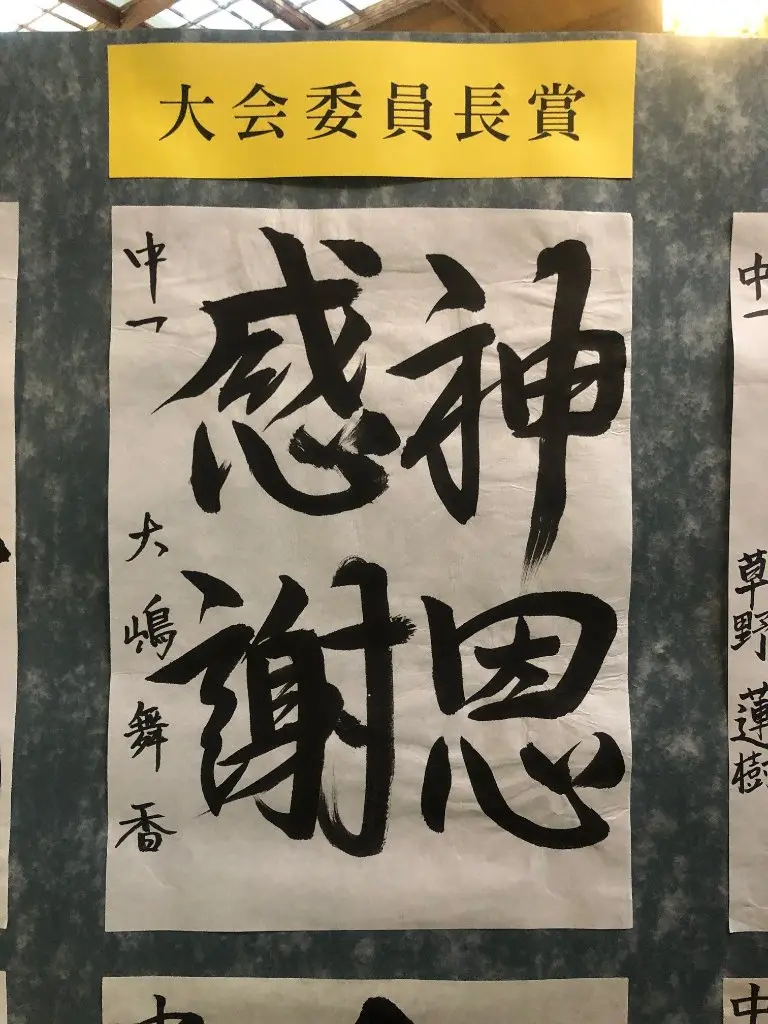 大会委員長賞
神恩
感謝
中一 大嶋舞香
中一 草野蓮樹
中
中